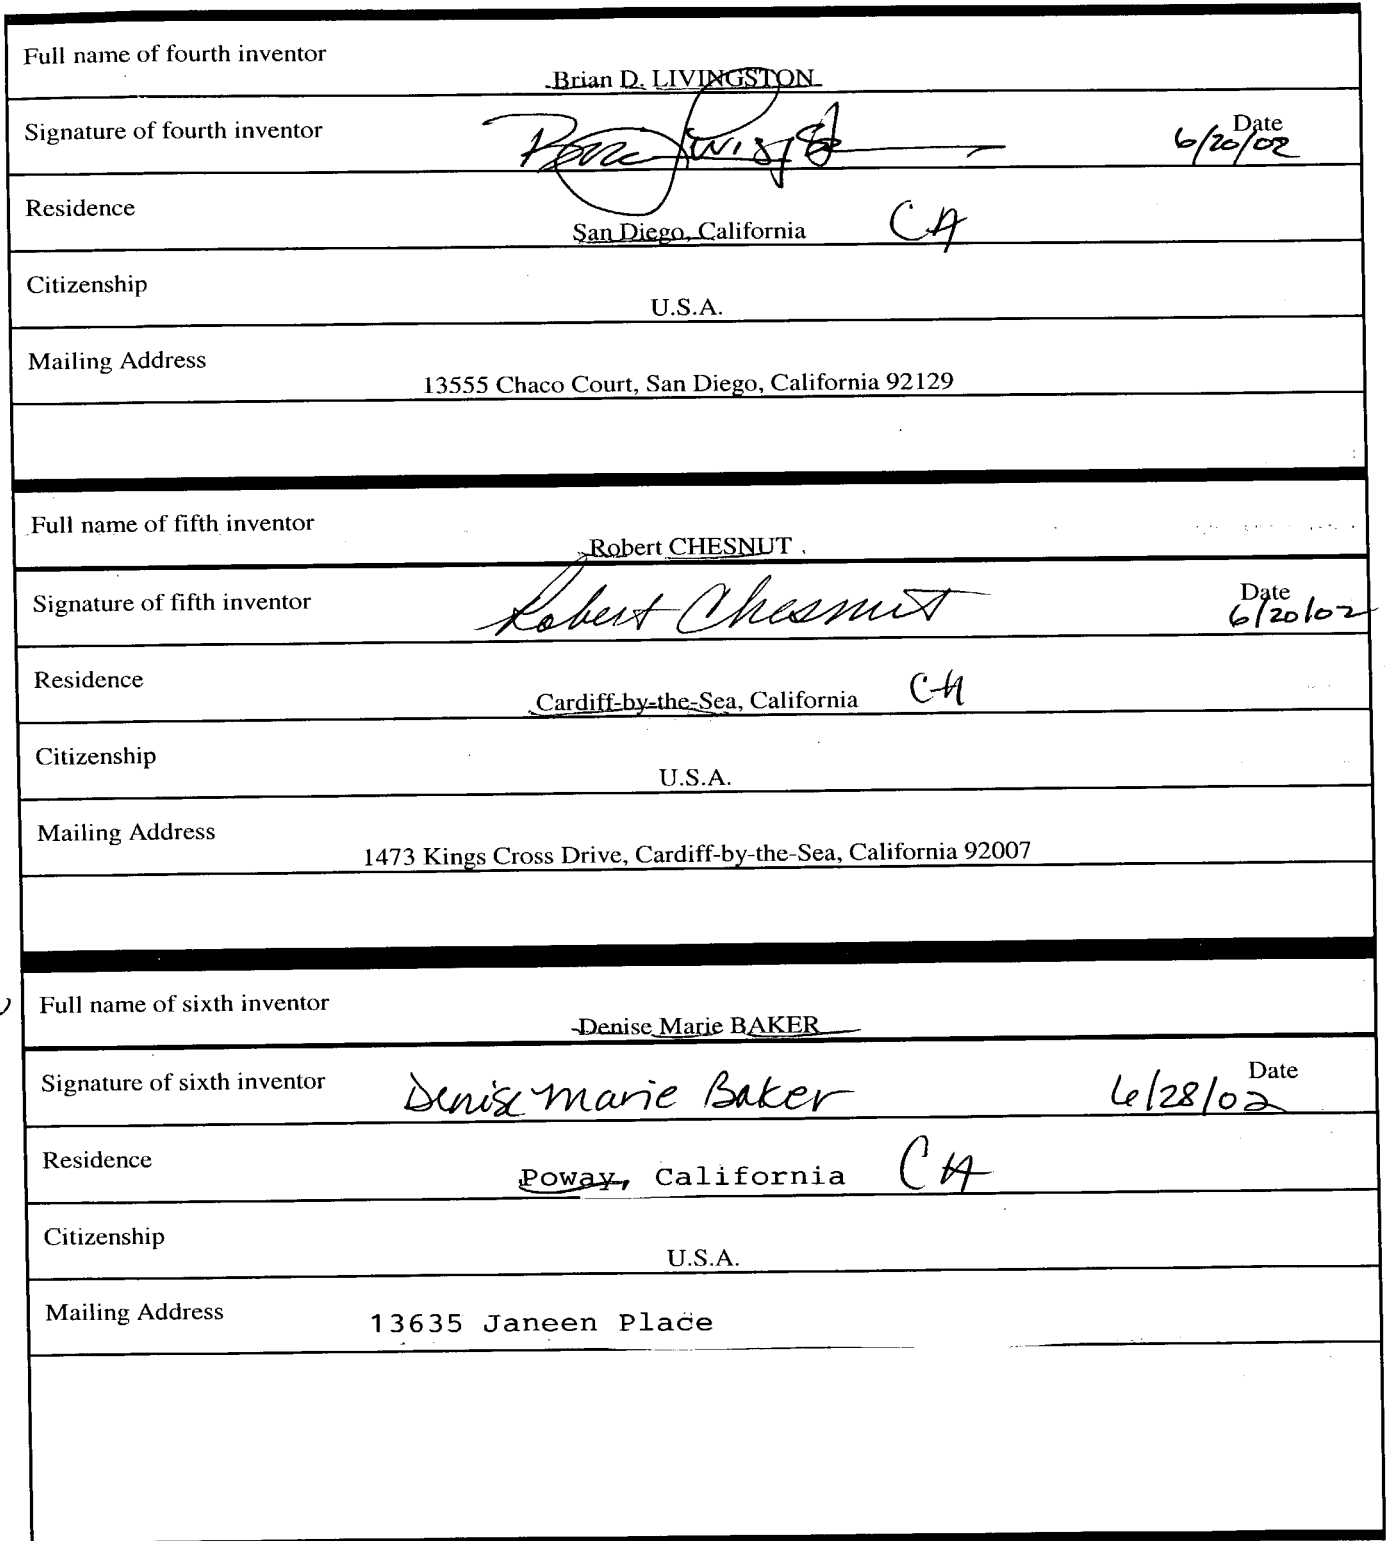 Full name of fourth inventor
Brian D. LIVINGSTON
Signature of fourth inventor
Date
6/20/02
Residence
San Diego, California CA
Citizenship
U.S.A.
Mailing Address
13555 Chaco Court, San Diego, California 92129
Full name of fifth inventor
Robert CHESNUT
Signature of fifth inventor Robert Chesnut Date
6/20/02
Residence
Cardiff-by-the-Sea, California CA
Citizenship
U.S.A.
Mailing Address
1473 Kings Cross Drive, Cardiff-by-the-Sea, California 92007
Full name of sixth inventor
Denise Marie BAKER
Signature of sixth inventor Denise Marie Baker 6/28/02 Date
Residence
Poway, California CA
Citizenship
U.S.A.
Mailing Address 13635 Janeen Place